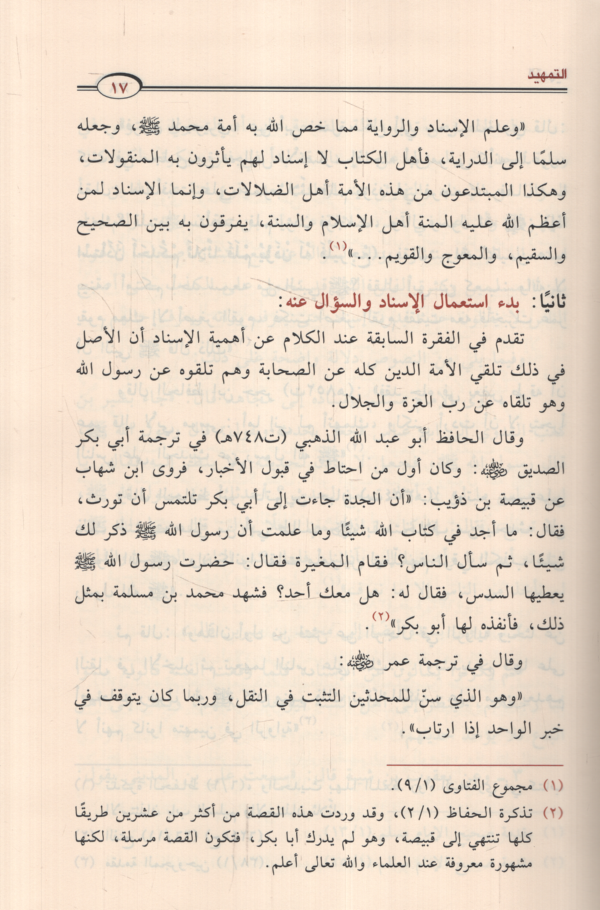 التمهيد
١٧
«وعلم الإسناد والرواية مما خص الله به أمة محمد ﷺ، وجعله
سلمًا إلى الدراية، فأهل الكتاب لا إسناد لهم يأثرون به المنقولات،
وهكذا المبتدعون من هذه الأمة أهل الضلالات، وإنما الإسناد لمن
أعظم الله عليه المنة أهل الإسلام والسنة، يفرقون به بين الصحيح
والسقيم، والمعوج والقويم...»(١).
ثانيًا: بدء استعمال الإسناد والسؤال عنه:
تقدم في الفقرة السابقة عند الكلام عن أهمية الإسناد أن الأصل
في ذلك تلقي الأمة الدين كله عن الصحابة وهم تلقوه عن رسول الله
وهو تلقاه عن رب العزة والجلال.
وقال الحافظ أبو عبد الله الذهبي (ت٧٤٨هـ) في ترجمة أبي بكر
الصديق رضي الله عنه: وكان أول من احتاط في قبول الأخبار، فروى ابن شهاب
عن قبيصة بن ذؤيب: «أن الجدة جاءت إلى أبي بكر تلتمس أن تورث،
فقال: ما أجد في كتاب الله شيئًا وما علمت أن رسول الله ﷺ ذكر لك
شيئًا، ثم سأل الناس؟ فقام المغيرة فقال: حضرت رسول الله ﷺ
يعطيها السدس، فقال له: هل معك أحد؟ فشهد محمد بن مسلمة بمثل
ذلك، فأنفذه لها أبو بكر»(٢).
وقال في ترجمة عمر رضي الله عنه:
«وهو الذي سنّ للمحدثين التثبت في النقل، وربما كان يتوقف في
خبر الواحد إذا ارتاب».
(١) مجموع الفتاوى (٩/١).
(٢) تذكرة الحفاظ (٢/١)، وقد وردت هذه القصة من أكثر من عشرين طريقًا
كلها تنتهي إلى قبيصة، وهو لم يدرك أبا بكر، فتكون القصة مرسلة، لكنها
مشهورة معروفة عند العلماء والله تعالى أعلم.